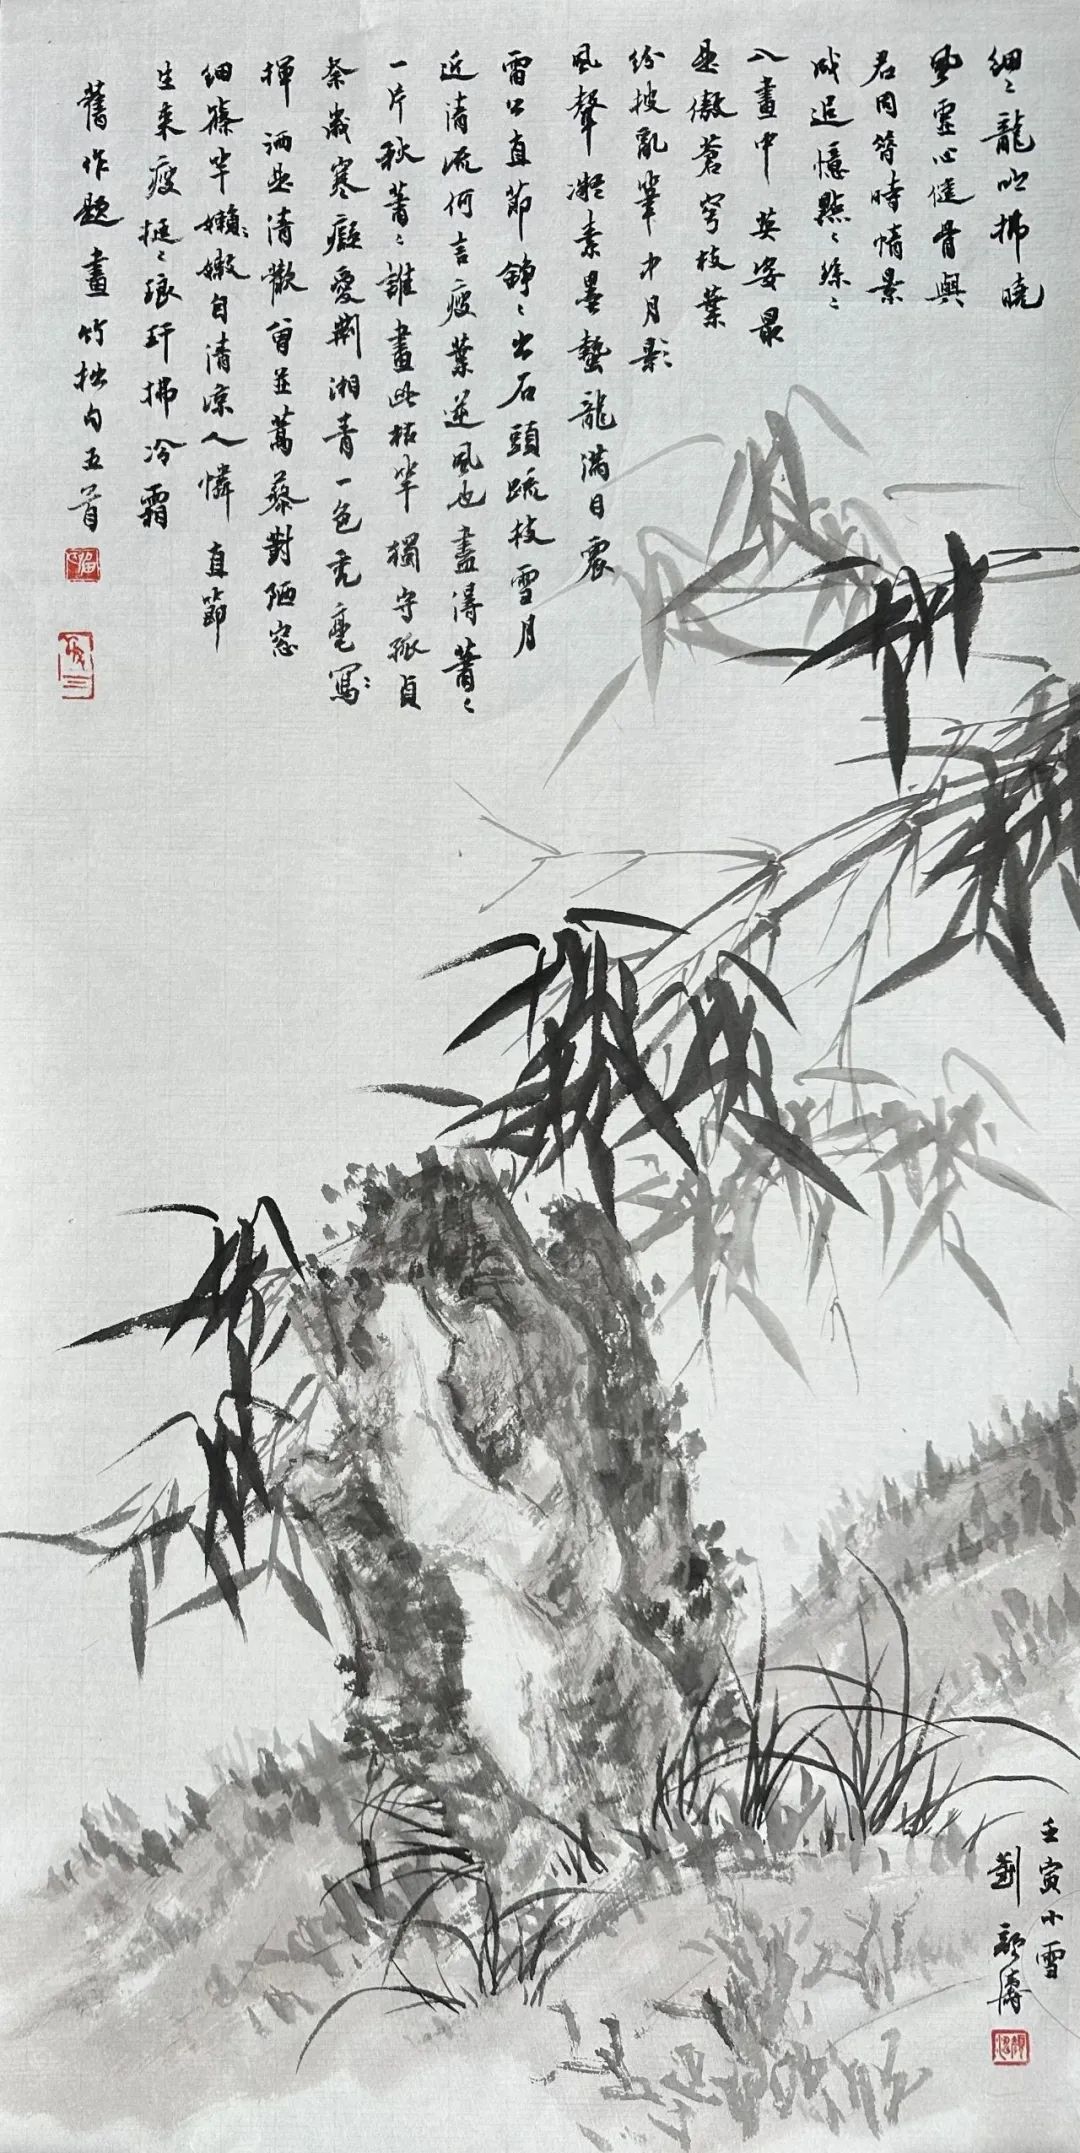 細〻龍吟拂曉
風靈心健骨與
君同昔時情景
成追憶點〻綠〻
入畫中 英姿最
是傲蒼穹枝葉
紛披亂筆中月影
風聲凝素墨蟄龍滿目震
雷公直節錚〻出石頭疏枝雪月
近清流何言瘦葉逆風也盡得菁〻
一片秋菁〻誰畫此枯竿獨守孤貞
奈歲寒癡愛荆湘青一色禿毫寫〻
揮洒無清散曾並蒿藜對陋窓
細篠竿嬾〻嫩自清凉人憐直節
生來瘦挺〻琅玕拂冷霜
舊作題畫竹拙句五首
壬寅小雪
劉濤